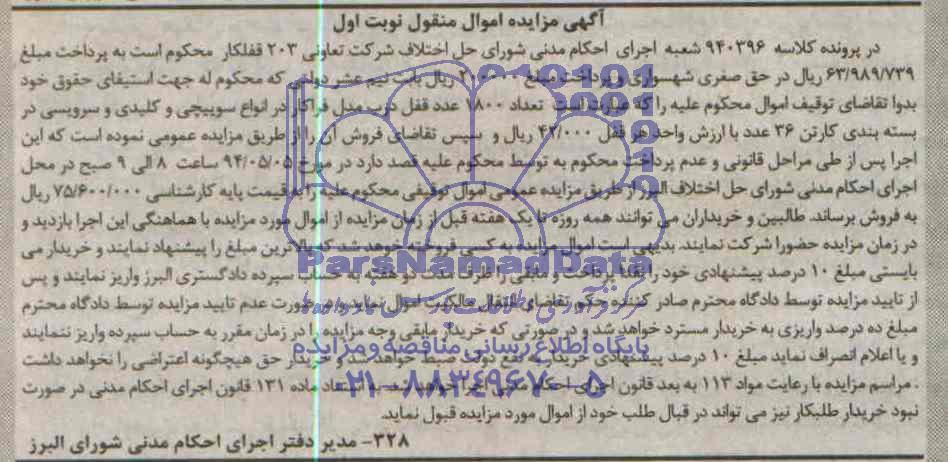 آگهی مزایده اموال منقول نوبت اول
در پرونده کلاسه ۹۴۰۳۹۶ شعبه اجرای احکام مدنی شورای حل اختلاف شرکت تعاونی ۲۰۳ قفلکار محکوم است به پرداخت مبلغ
۶۳/۹۸۹/۷۳۹ ریال در حق صفری شهسواری و پرداخت مبلغ ریال بابت نیم عشر دولتی که محکوم له جهت استیفای حقوق خود
بدوا تقاضای توقیف اموال محکوم علیه را که عبارت است تعداد ۱۸۰۰ عدد قفل درب مدل فراکار در انواع سوییچی و کلیدی و سرویسی در
بسته بندی کارتن ۳۶ عدد با ارزش واحد هر قفل ۴۲/۰۰۰ ریال و سپس تقاضای فروش آن را از طریق مزایده عمومی نموده است که این
اجرا پس از طی مراحل قانونی و عدم پرداخت محکوم به توسط محکوم علیه قصد دارد در مورخ ۹۴/۰۵/۰۵ ساعت ۸ الی ۹ صبح در محل
اجرای احکام مدنی شورای حل اختلاف البرز از طریق مزایده عمومی اموال توقیفی محکوم علیه را به قیمت پایه کارشناسی ۷۵/۶۰۰/۰۰۰ ریال
به فروش برساند. طالبین و خریداران می توانند همه روزه تا یک هفته قبل از زمان مزایده از اموال مورد مزایده با هماهنگی این اجرا بازدید و
در زمان مزایده حضورا شرکت نمایند. بدیهی است اموال مزایده به کسی فروخته خواهد شد که بالاترین مبلغ را پیشنهاد نمایند و خریدار می
بایستی مبلغ ۱۰ درصد پیشنهادی خود را نقدا پرداخت و مابقی را ظرف مدت دو هفته به حساب سپرده دادگستری البرز واریز نمایند و پس
از تایید مزایده توسط دادگاه محترم صادر کننده حکم تقاضای انتقال مالکیت اموال نماید و در صورت عدم تایید مزایده توسط دادگاه محترم
مبلغ ده درصد واریزی به خریدار مسترد خواهد شد و در صورتی که خریدار مابقی وجه مزایده را در زمان مقرر به حساب سپرده واریز ننمایند
و یا اعلام انصراف نماید مبلغ ۱۰ درصد پیشنهادی خریدار به نفع دولت ضبط خواهد شد و خریدار حق هیچگونه اعتراضی را نخواهد داشت
. مراسم مزایده با رعایت مواد ۱۱۳ به بعد قانون اجرای احکام مدنی اجرا خواهد شد به استناد ماده ۱۳۱ قانون اجرای احکام مدنی در صورت
نبود خریدار طلبکار نیز می تواند در قبال طلب خود از اموال مورد مزایده قبول نماید.
۳۲۸- مدیر دفتر اجرای احکام مدنی شورای البرز
ParsNamadData
پایگاه اطلاع رسانی مناقصه و مزایده
۰۲۱-۸۸۳۴۹۶۷۰-۵